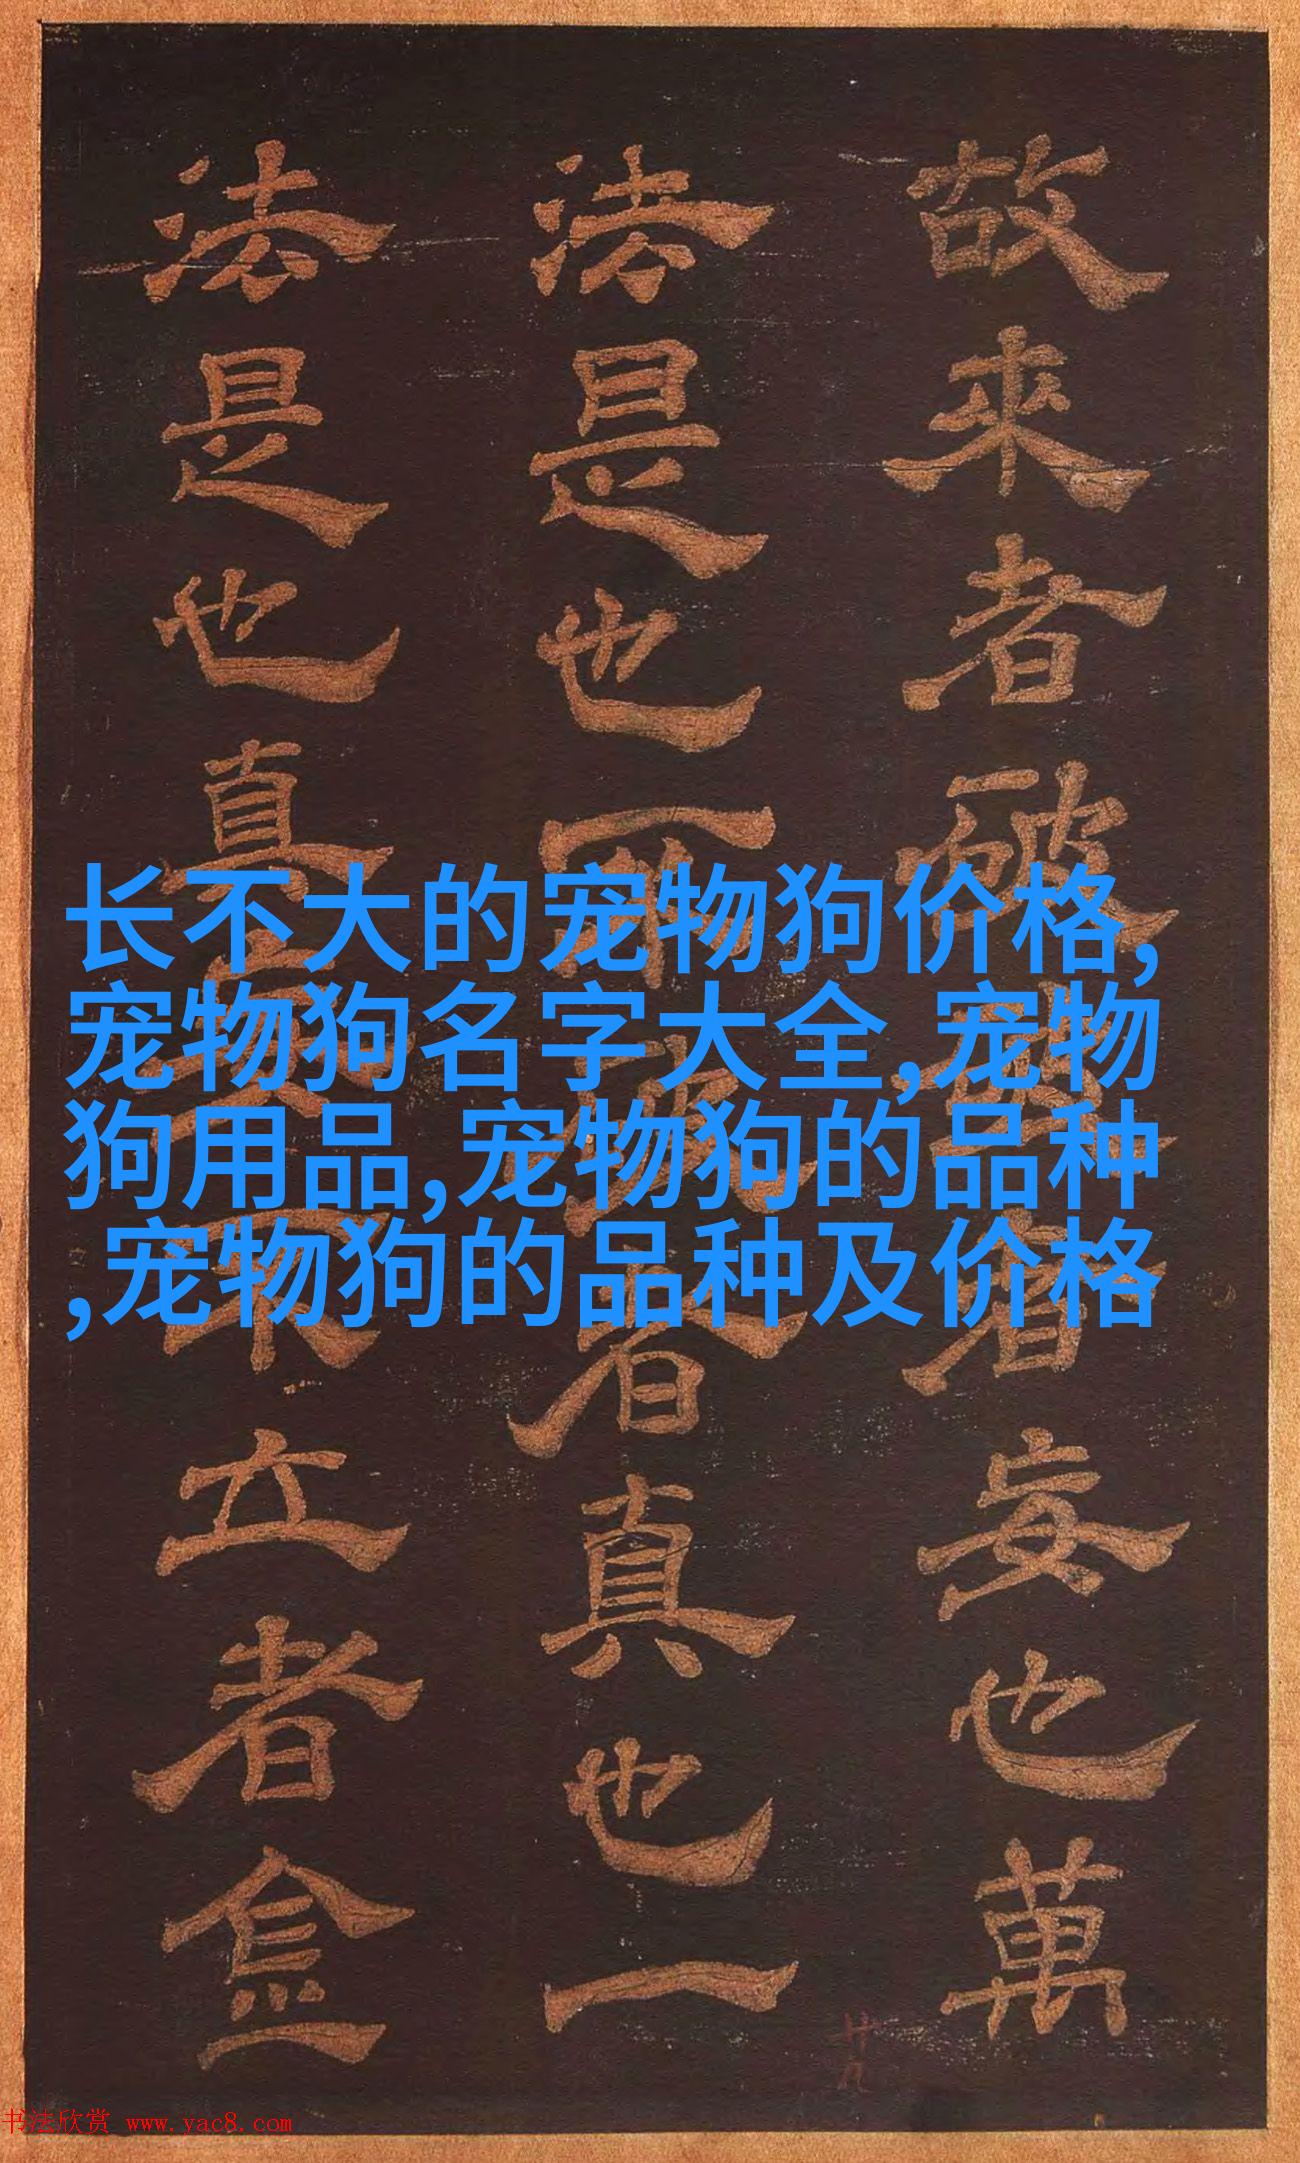 故來者破者妄也萬
法是也不破者真也一
法是也真妄不立者
长不大的宠物狗价格,
宠物狗名字大全,宠物
狗用品,宠物狗的品种
,宠物狗的品种及价格
廿九
书法欣赏 www.yac8.com